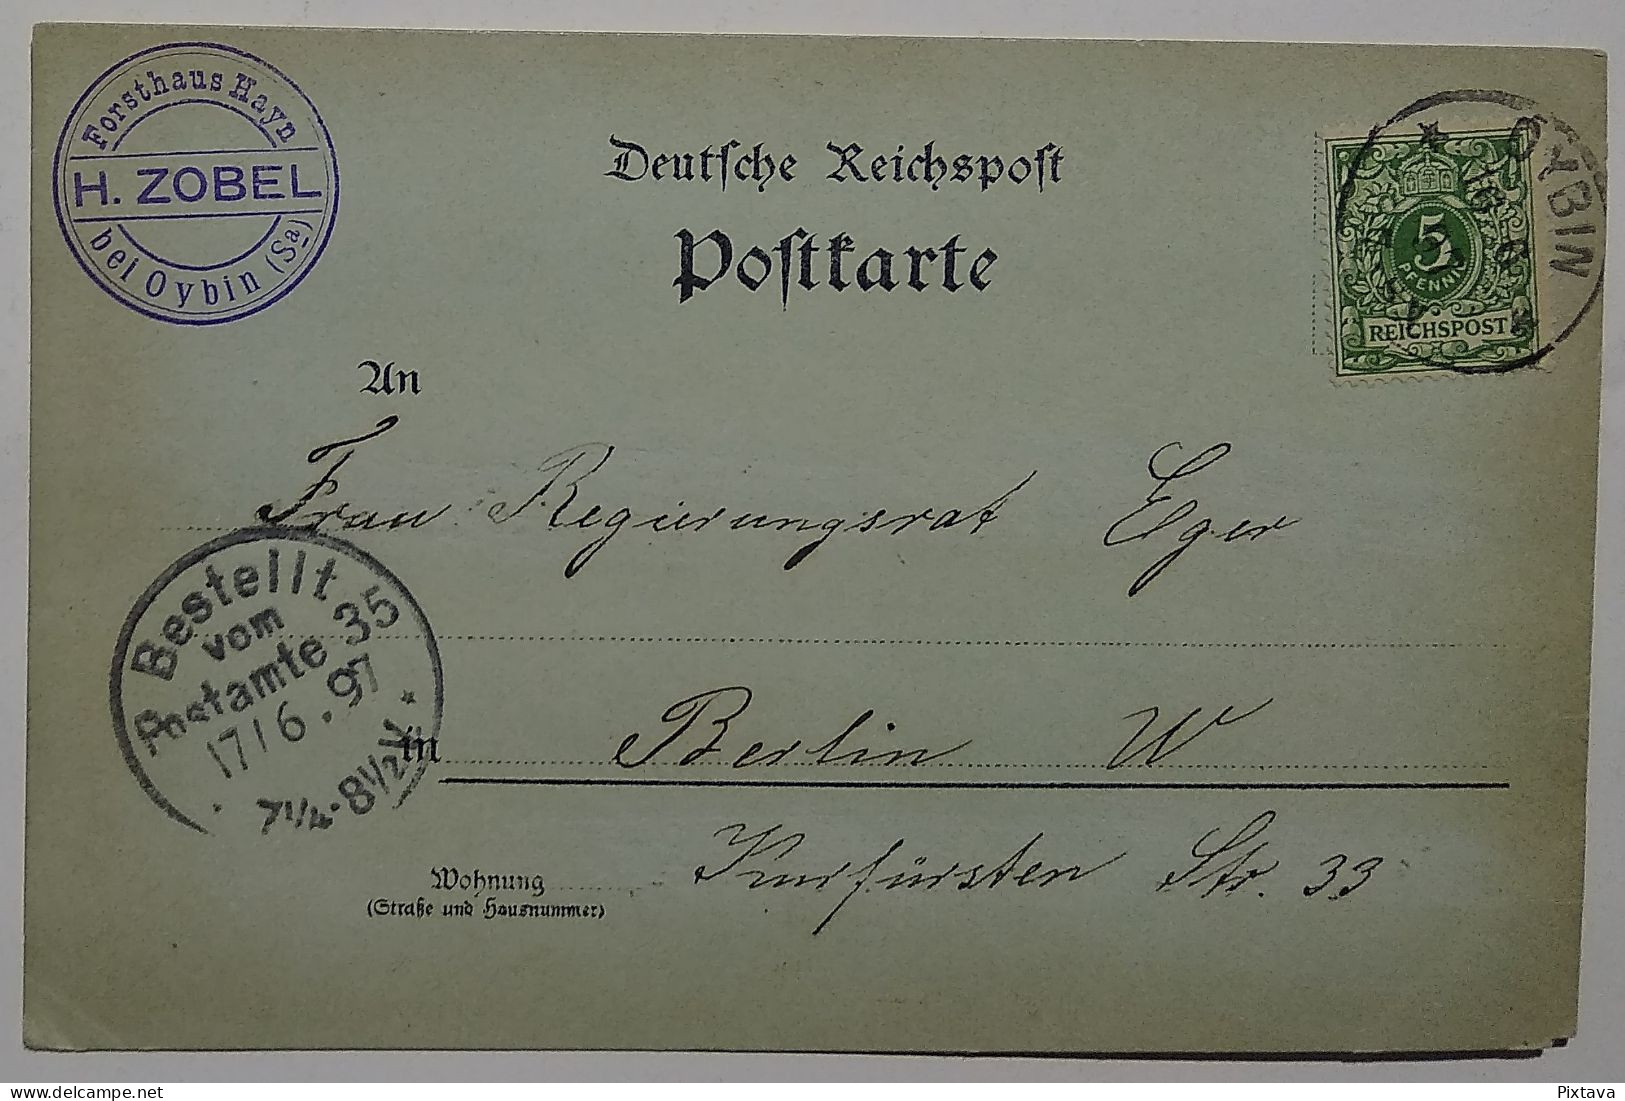 Forsthaus Hayn
H. ZOBEL
bei Oybin (Sa)
Deutsche Reichspost
Postkarte
OYBIN
16 6
5
PFENNIG
REICHSPOST
An
Frau Regierungsrat Eger
Bestellt
vom
Postamte 35
17/6.97
7¼-8½V.
in Berlin W
Wohnung
(Straße und Hausnummer)
Kurfürsten Str. 33
Pixtava